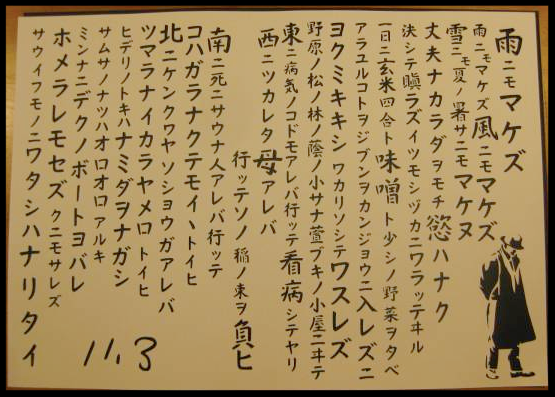 雨ニモマケズ
雨ニモマケズ風ニモマケズ
雪ニモ夏ノ暑サニモマケヌ
丈夫ナカラダヲモチ慾ハナク
決シテ瞋ラズイツモシヅカニワラッテヰル
一日ニ玄米四合ト味噌ト少シノ野菜ヲタベ
アラユルコトヲジブンヲカンジョウニ入レズニ
ヨクミキキシワカリソシテワスレズ
野原ノ松ノ林ノ蔭ノ小サナ萱ブキノ小屋ニヰテ
東ニ病気ノコドモアレバ行ッテ看病シテヤリ
西ニツカレタ母アレバ
行ッテソノ稲ノ束ヲ負ヒ
南ニ死ニサウナ人アレバ行ッテ
コハガラナクテモイヽトイヒ
北ニケンクヮヤソショウガアレバ
ツマラナイカラヤメロトイヒ
ヒデリノトキハナミダヲナガシ
サムサノナツハオロオロアルキ
ミンナニデクノボートヨバレ
ホメラレモセズクニモサレズ
サウイフモノニワタシハナリタイ
11.3